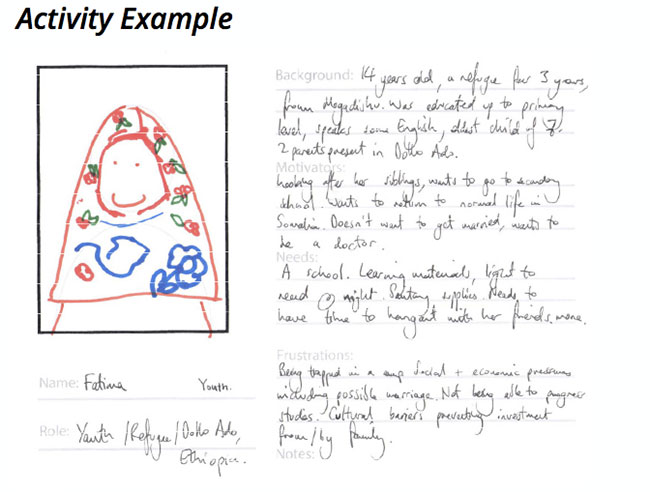 Activity Example
Background: 14 years old, a refugee for 3 years,
from Mogadishu. Was educated up to primary
level, speaks some English, eldest child of 7.
2 parents present in Dollo Ado.
Motivators:
Looking after her siblings, wants to go to secondary
school. Wants to return to normal life in
Somalia. Doesn't want to get married, wants to
be a doctor.
Needs:
A school. Learning materials, light to
read @ night. Sanitary supplies. Needs to
have time to hangout with her friends more.
Frustrations:
Being trapped in a camp. Social + economic pressures
including possible marriage. Not being able to progress
studies. Cultural barriers preventing investment
from/by family.
Notes:
Name: Fatima Youth.
Role: Youth/Refugee/Dollo Ado,
Ethiopia.